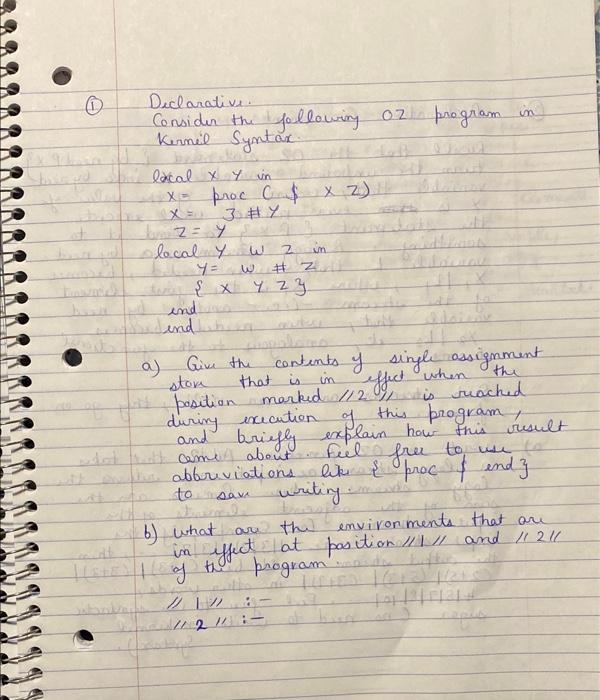 ① Declarative.
Consider the following OZ program in
Kernel Syntax.
local X Y in
X = proc ( $ X Z)
X = 3 # Y
Z = Y
local Y W Z in
Y = W # Z
{ X Y Z }
end
end
a) Give the contents of single assignment
store that is in effect when the
position marked //2// is reached
during execution of this program,
and briefly explain how this result
came about. Feel free to use
abbreviations like { proc $ end }
to save writing.
b) What are the environments that are
in effect at position //1// and //2//
of the program.
//1// :-
//2// :-